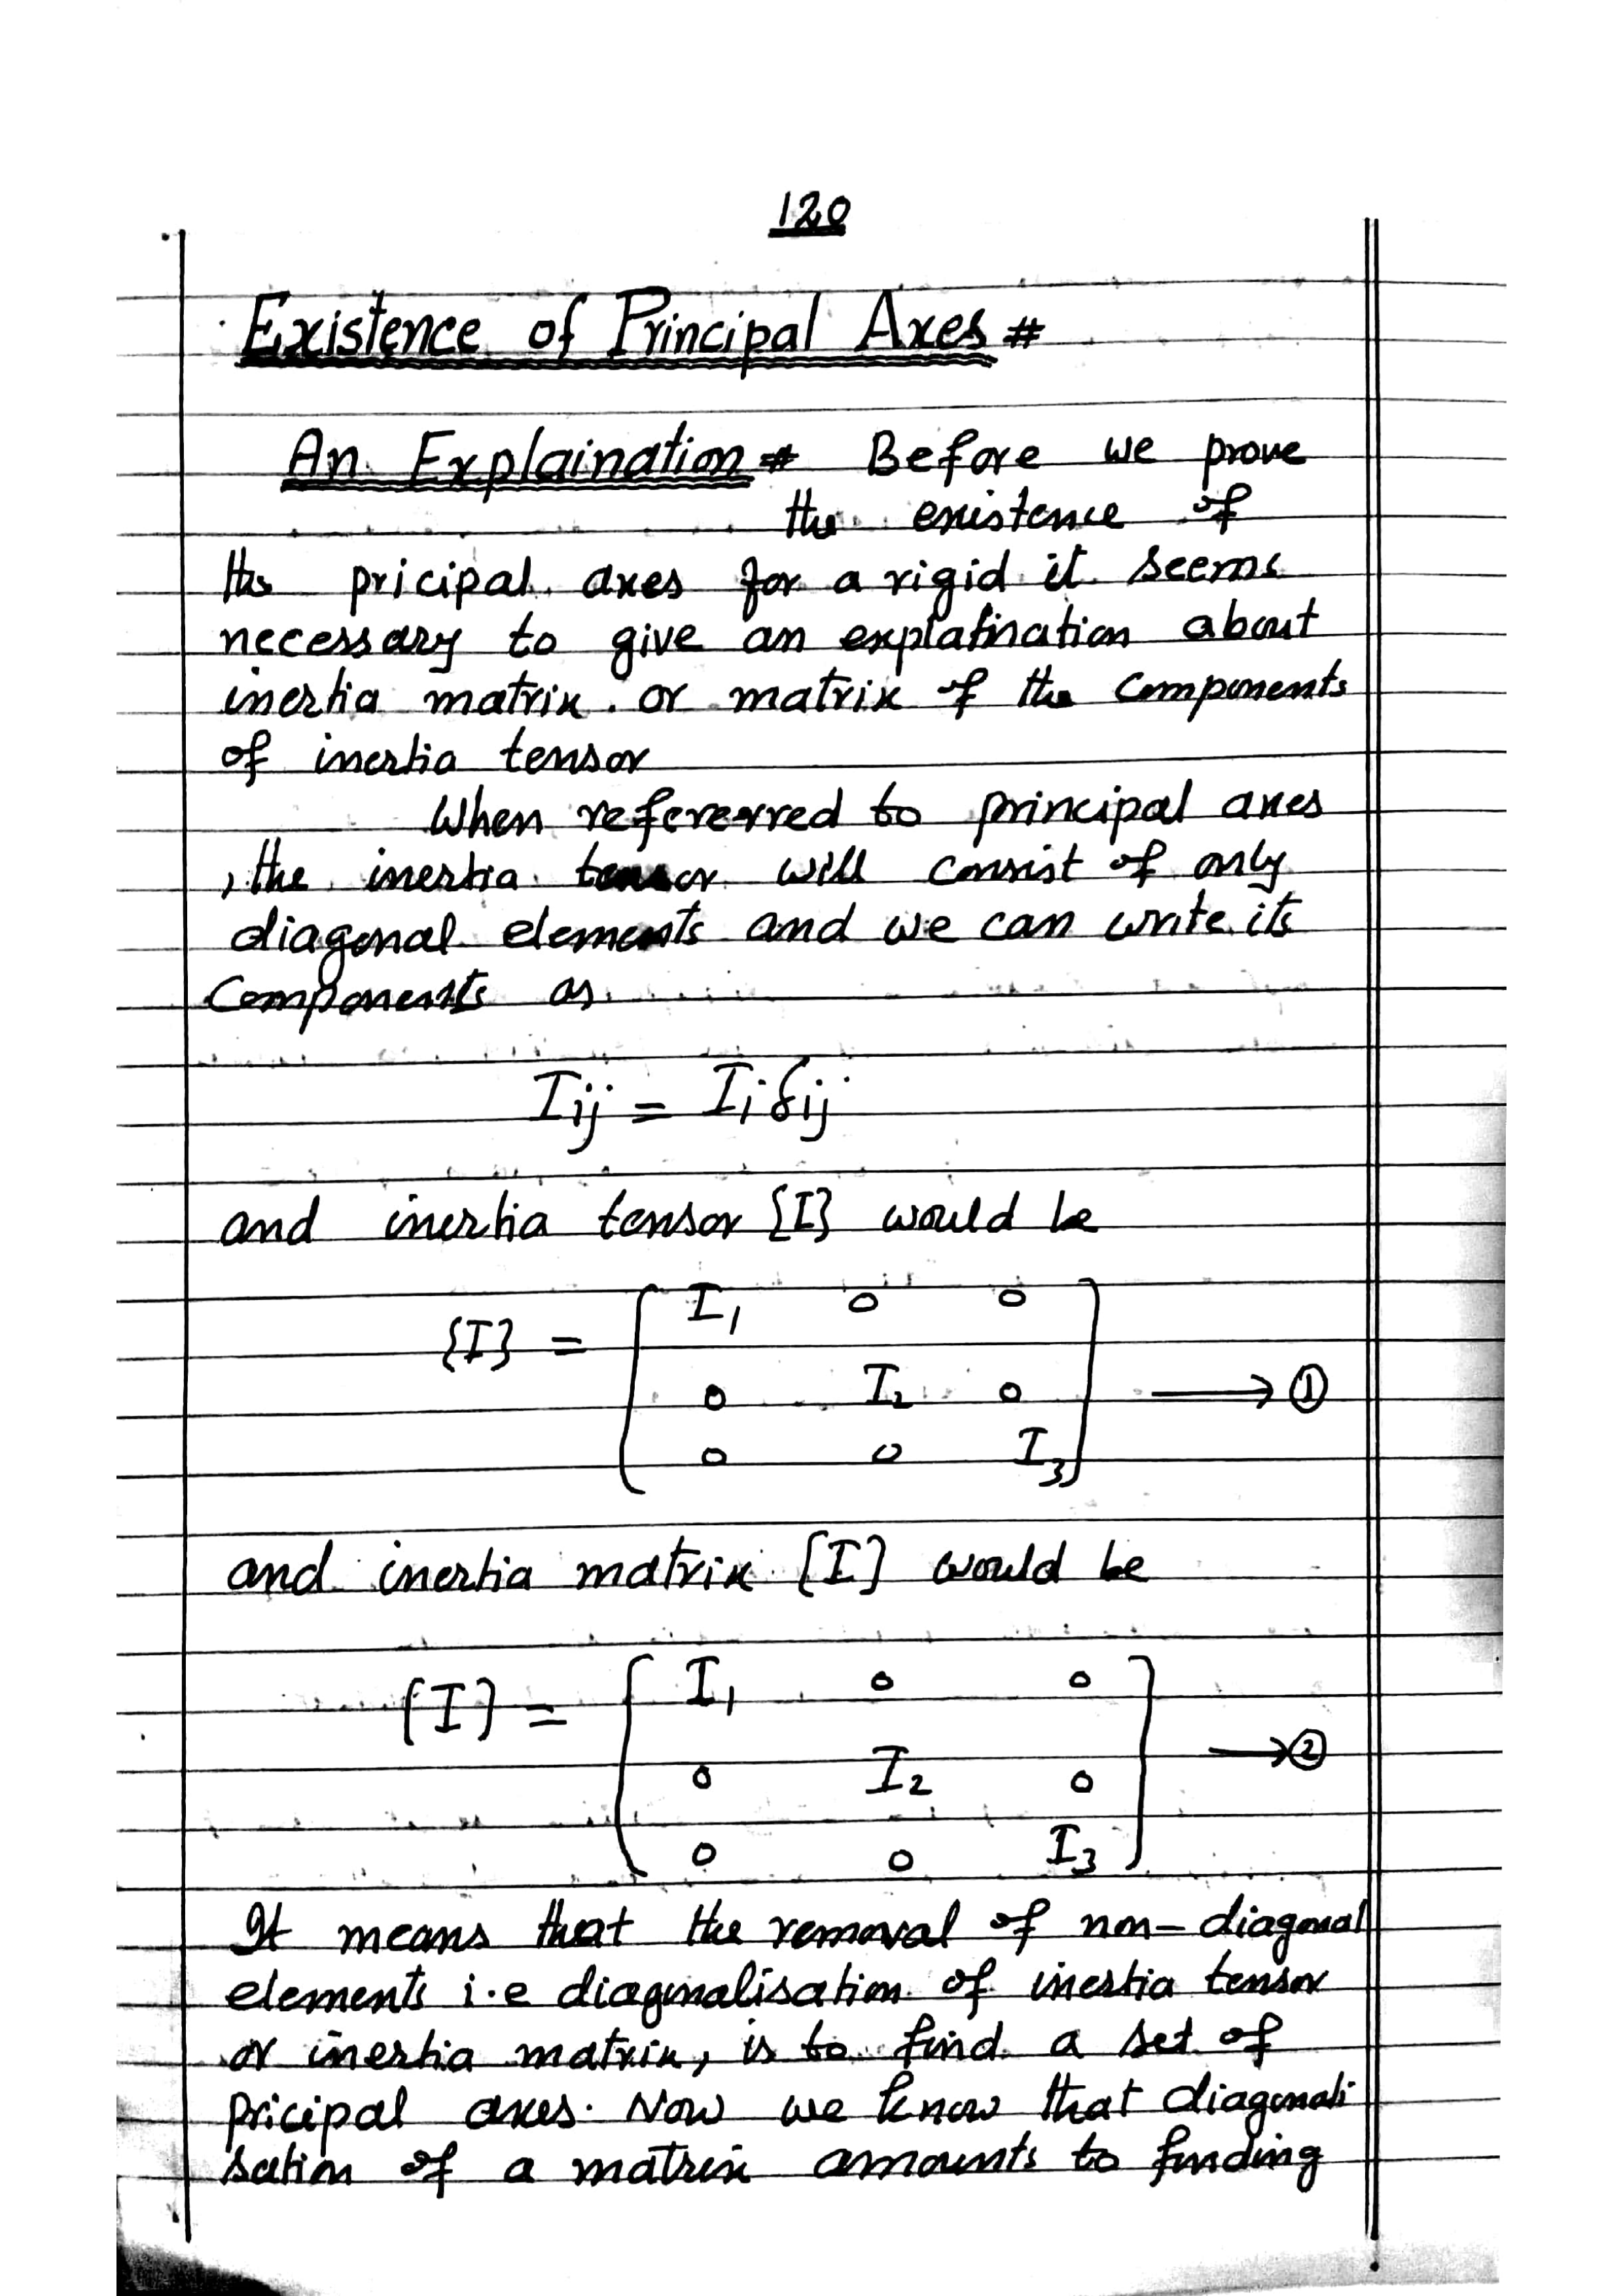 120
Existence of Principal Axes #
An Explaination # Before we prove
the existence of
the pricipal axes for a rigid it seems
necessary to give an explatination about
inertia matrix . or matrix of the components
of inertia tensor
When refererred to principal axes
, the inertia tensor will consist of only
diagonal elements and we can write its
Components as
Iij = Ii δij
and inertia tensor {I} would be
{I} = [ I1 0 0
0 I2 0 ⟶ ①
0 0 I3 ]
and inertia matrix {I} would be
{I} = [ I1 0 0
0 I2 0 ⟶ ②
0 0 I3 ]
It means that the removal of non-diagonal
elements i.e diagonalisation of inertia tensor
or inertia matrix, is to find a set of
pricipal axes. Now we know that diagonali
sation of a matrix amounts to finding